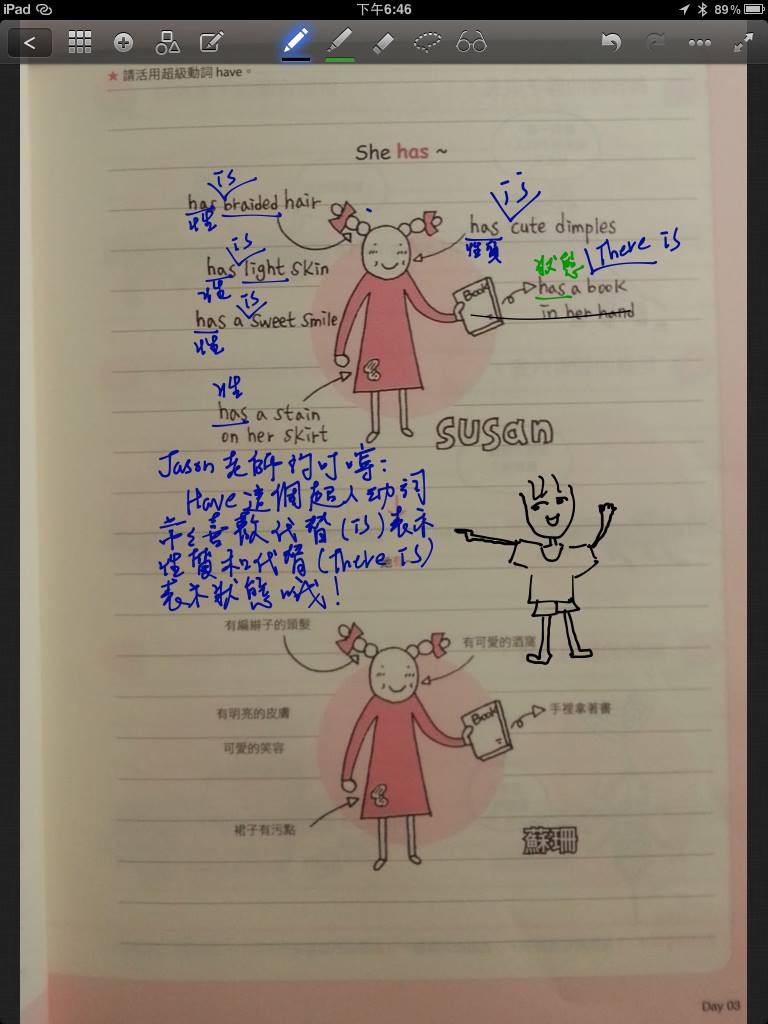 iPad 下午6:46 89%
★ 請活用超級動詞 have。
She has ~
is
has braided hair
性
is
has cute dimples
性質
is
has light skin
性
狀態 There is
has a book
in her hand
is
has a sweet smile
性
Book
性
has a stain
on her skirt
SUSAN
Jason老師的叮嚀:
Have這個超人動詞
辛苦喜歡代替(is)表示
性質和代替(There is)
表示狀態哦!
有編辮子的頭髮
有可愛的酒窩
有明亮的皮膚
Book
手裡拿著書
可愛的笑容
裙子有污點
蘇珊
Day 03